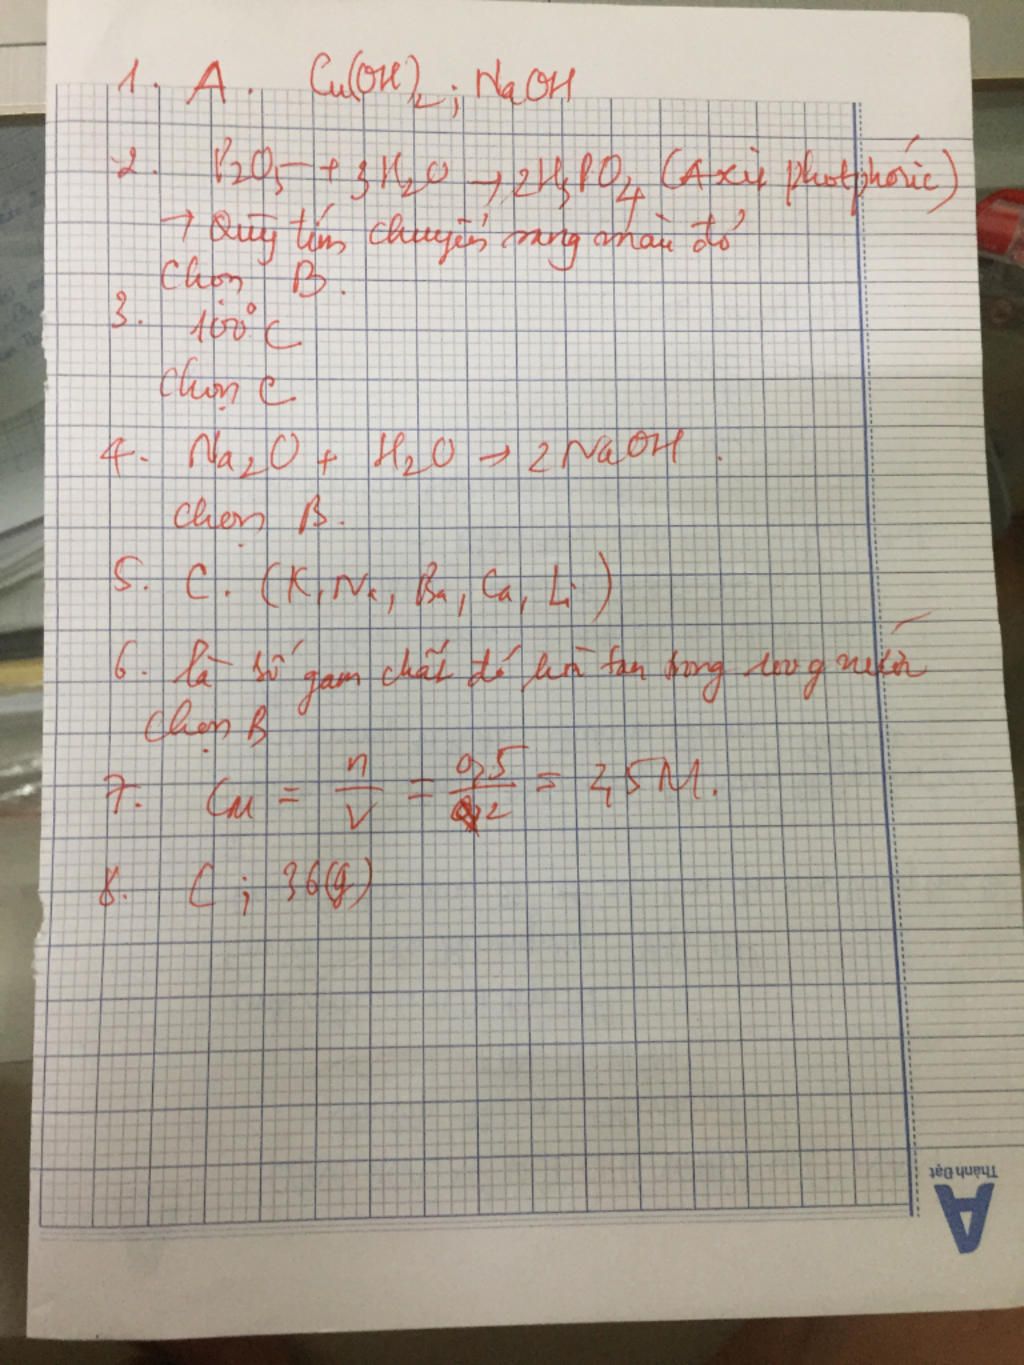 1. A. Cu(OH)₂; NaOH
2. P₂O₅ + 3H₂O → 2H₃PO₄ (Axit photphoric)
→ Quỳ tím chuyển sang màu đỏ
Chọn B.
3. 100°C
Chọn C
4. Na₂O + H₂O → 2NaOH.
Chọn B.
5. C. (K, Na, Ba, Ca, Li)
6. là số gam chất đó tan trong 100g nước
Chọn B
7. CM = n/V = 0,5/2 = 2,5M.
8. C; 36(g)
Thành Đạt
A